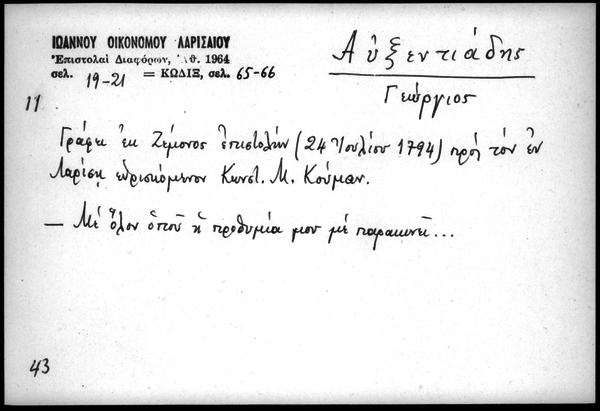 ΙΩΑΝΝΟΥ ΟΙΚΟΝΟΜΟΥ ΛΑΡΙΣΑΙΟΥ
Ἐπιστολαὶ Διαφόρων, Ἀθ. 1964
σελ. 19-21 = ΚΩΔΙΞ, σελ. 65-66
Αὐξεντιάδης
Γεώργιος
11
Γράφει ἐκ Ζέμονος ἐπιστολήν (24 Ἰουλίου 1794) πρὸς τὸν ἐν
Λαρίσῃ εὑρισκόμενον Κωνστ. Μ. Κούμαν.
— Μὲ ὅλον ὁποῦ ἡ προθυμία μου μὲ παρακινεῖ...
43